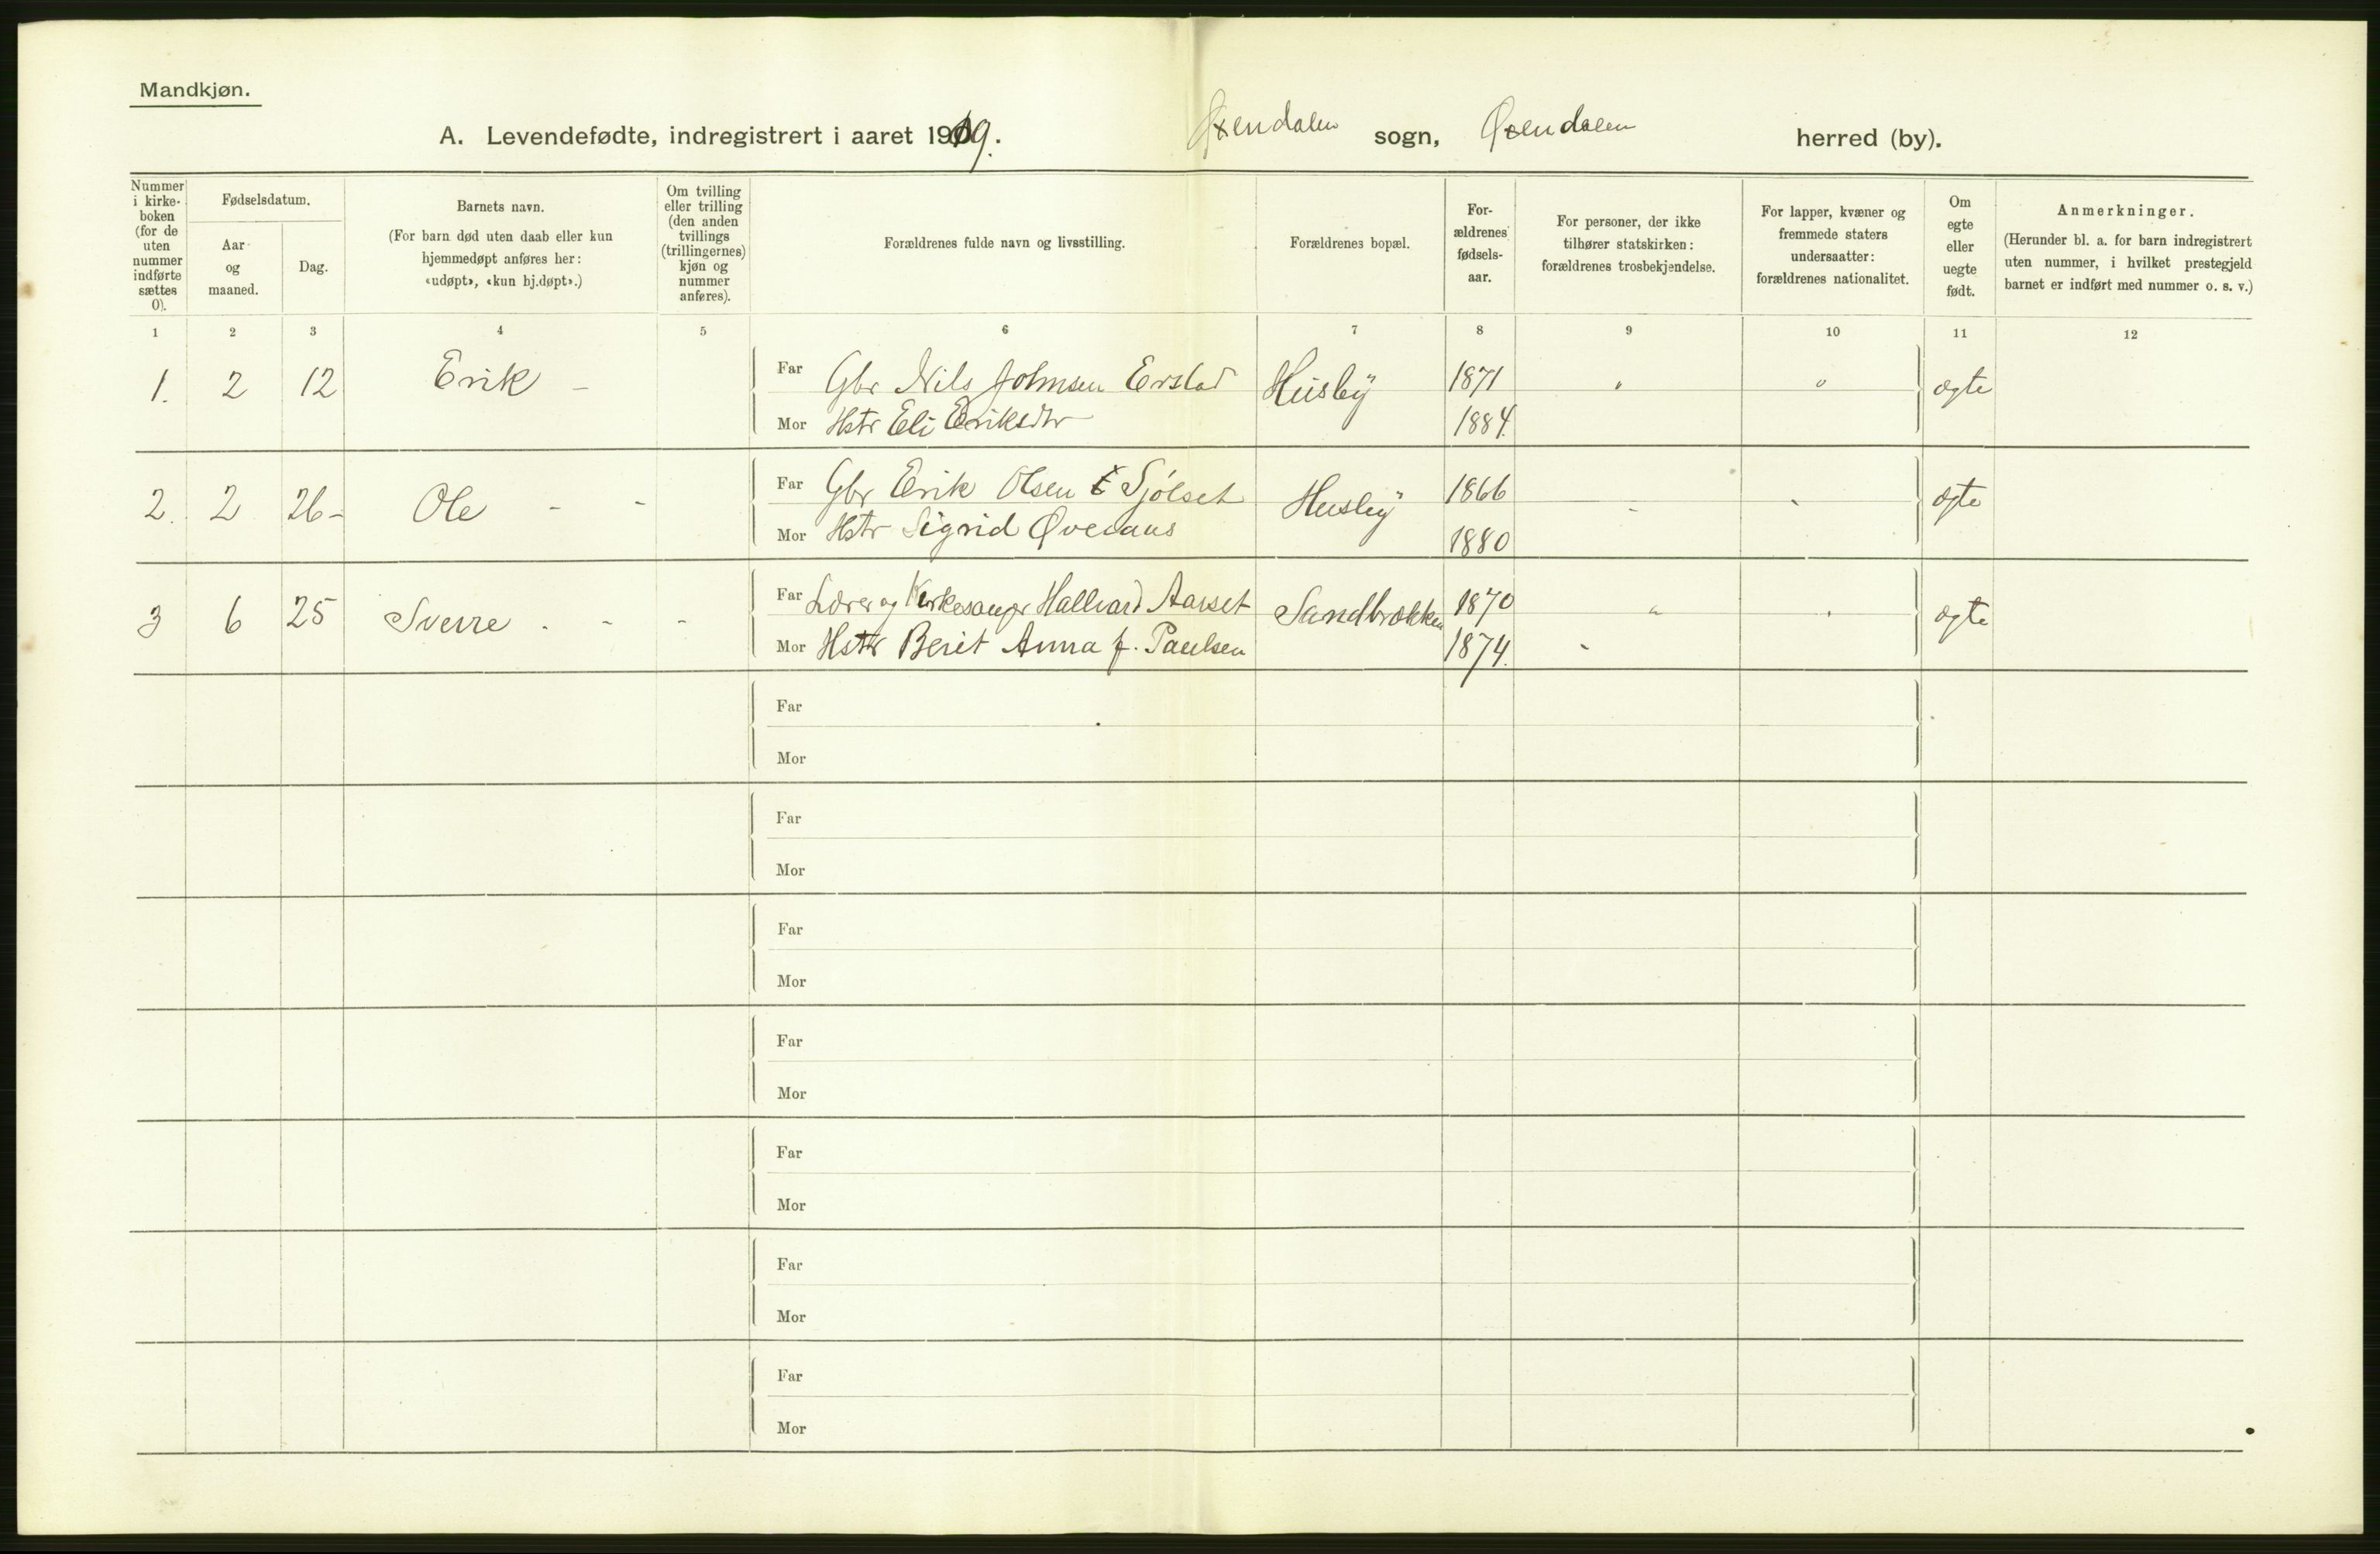 Mandkjøn.
A. Levendefødte, indregistrert i aaret 1919. Øxendalen sogn, Øxendalen herred (by).
Nummer i kirke-boken (for de uten nummer indførte sættes 0).
Fødselsdatum.
Aar og maaned.
Dag.
Barnets navn.
(For barn død uten daab eller kun hjemmedøpt anføres her: «udøpt», «kun hj.døpt».)
Om tvilling eller trilling (den anden tvillings (trillingernes) kjøn og nummer anføres).
Forældrenes fulde navn og livsstilling.
Forældrenes bopæl.
For-ældrenes fødsels-aar.
For personer, der ikke tilhører statskirken: forældrenes trosbekjendelse.
For lapper, kvæner og fremmede staters undersaatter: forældrenes nationalitet.
Om egte eller uegte født.
Anmerkninger.
(Herunder bl. a. for barn indregistrert uten nummer, i hvilket prestegjeld barnet er indført med nummer o. s. v.)
1 2 3 4 5 6 7 8 9 10 11 12
1. 2 12 Erik - Far Gbr Nils Johnsen Erstad Husby 1871 " " ægte
Mor Hstr Eli Eriksdtr 1884.
2. 2 26- Ole - - Far Gbr Erik Olsen Sjölset Husby 1866 - - ægte
Mor Hstr Sigrid 1880
3 6 25 Sverre - - - Far Lærer og Kirkesanger Hallvard Aarset Sandbrækken 1870 " " ægte
Mor Hstr Berit Anna f. Paulsen 1874. -
Far
Mor
Far
Mor
Far
Mor
Far
Mor
Far
Mor
Far
Mor
Far
Mor